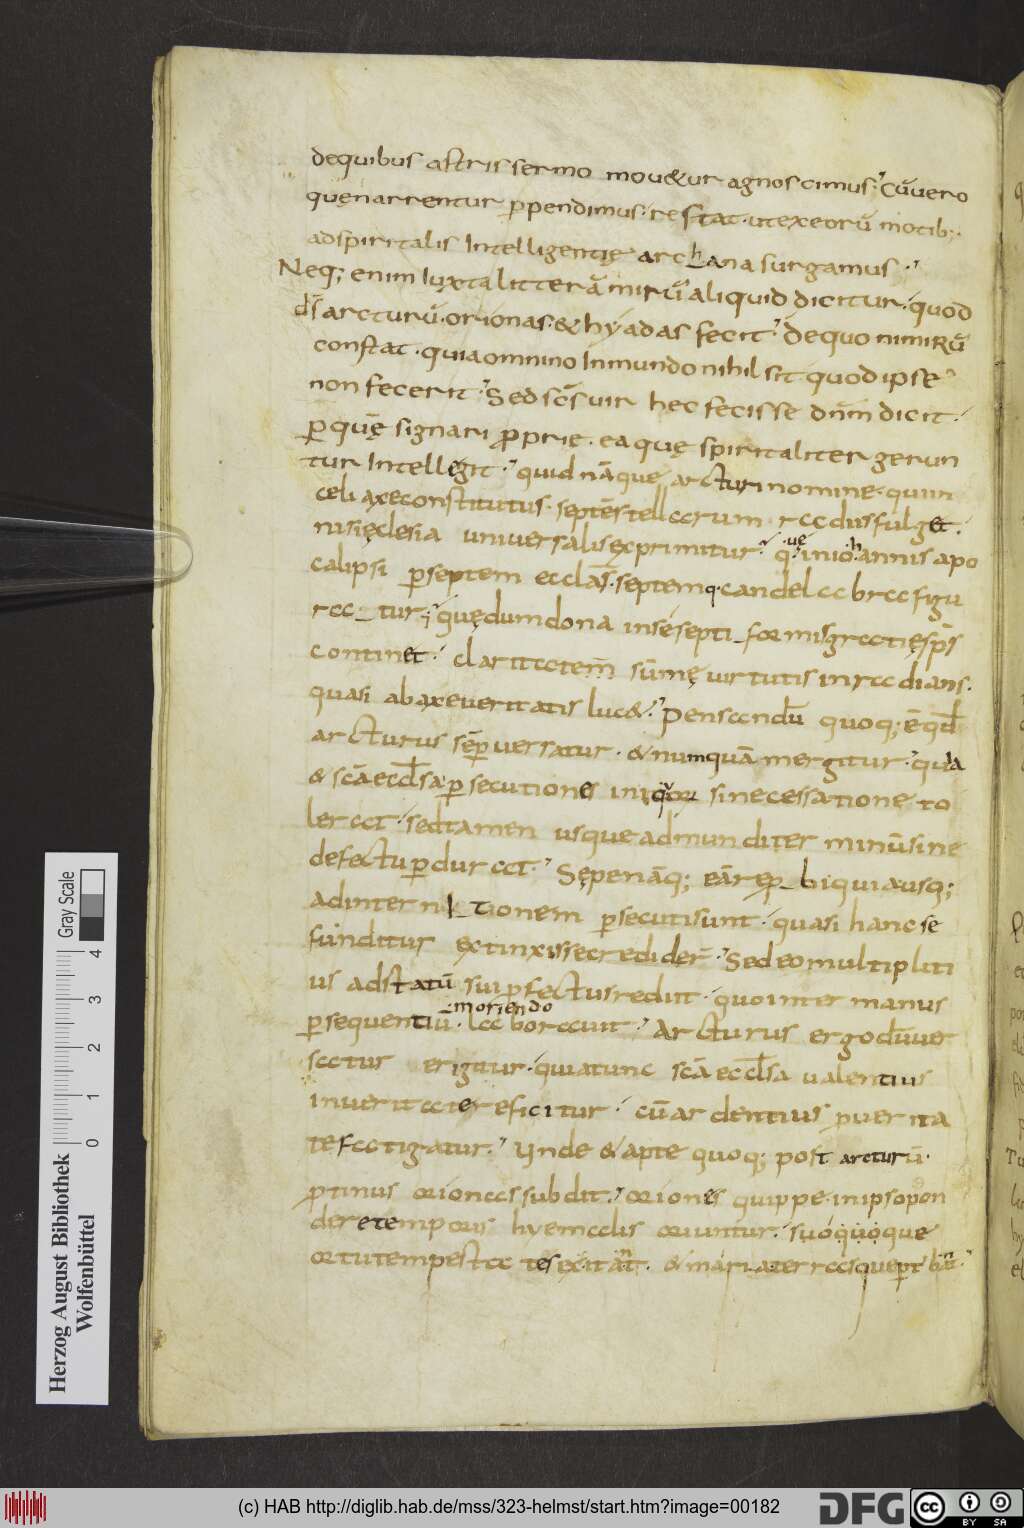 dequibus astris sermo mou&ur agnoscimus; Cũ vero
quęnarrentur ꝑpendimus. restat. utexeorũ motib;.
adspiritalis Intelligentię archana surgamus.
Neq; enim Iuxta litterã mirũ aliquid dicitur. quod
ds̄ arcturũ. orionas. & hyadas fecit. dequo nimirũ
constat. quia omnino Inmundo nihil sit quod ipse
non fecerit. Sed scs̄ uir hec fecisse dn̄m dicit.
ꝑ quę̄ signari ꝓprię. ea quę spiritaliter gerun
tur Intellegit. quid nãque arcturi nomine. qui in
celi axe constitutus. septē stellarum radiis fulget.
nisi ęclesia universalis exprimitur. q; in iohannis apo
calipsi ꝑ septem ecclās. septemq. candelabra figu
ratur; quędum dona in se septiformis gratię sp̄s
continet. claritatem sūmę virtutis inradians.
quasi ab axe ueritatis luc&. Pensandū quoq; ē qd̄
arcturus sēꝑ uersatur. & numquã mergitur. quia
& scā eccl̄sa ꝑsecutiones iniquor sine cessatione to
lerat. sed tamen usque ad mundi ter minū sine
defectu ꝑdurat. Sępe nãq; eã rep biquiausq;
ad internitionem ꝑsecuti sunt. quasi hanc se
funditur extinxisse credider̄. Sed eo multipliti
us ad statū sui ꝓfectus rediit. quo inter manus
ꝑsequentiū. moriendo laborauit. Arcturus ergo dū uer
satur erigitur. quia tunc scā eccl̄sa ualentius
in ueritate reficitur. cū ardentius ꝓ uerita
te fatigatur. Unde & apte quoq; post arcturū.
ꝓtinus orionas subdit. oriones quippe. in ipso pon
dere temporis hyemalis oriuntur. suoquoque
ortu tempestates excitant. & maria terrasque ꝑt bant.
Herzog August Bibliothek
Wolfenbüttel
Gray Scale
0 1 2 3 4
(c) HAB http://diglib.hab.de/mss/323-helmst/start.htm?image=00182
DFG
cc
BY SA